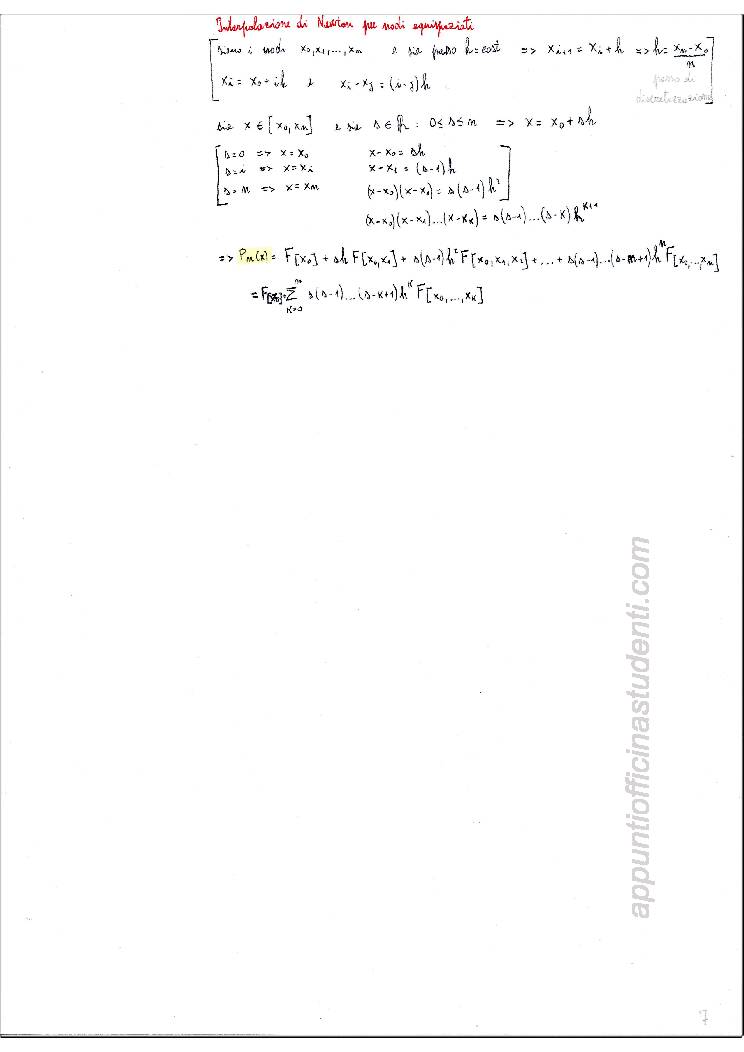 Interpolazione di Newton per nodi equispaziati
siano i nodi x₀,x₁,...,xₙ e sia passo h=cost => xᵢ₊₁ = xᵢ + h => h = (xₙ-x₀)/n
xᵢ = x₀ + ih e xᵢ - xⱼ = (i-j)h
passo di
discretizzazione
sia x ∈ [x₀,xₙ] e sia s ∈ ℝ : 0 ≤ s ≤ n => x = x₀ + sh
s=0 => x=x₀ x-x₀ = sh
s=i => x=xᵢ x-x₁ = (s-1)h
s=n => x=xₙ (x-x₀)(x-x₁) = s(s-1)h²
(x-x₀)(x-x₁)...(x-xₖ) = s(s-1)...(s-k)hᵏ⁺¹
=> Pₙ(x) = F[x₀] + sh F[x₀,x₁] + s(s-1)h² F[x₀,x₁,x₂] + ... + s(s-1)...(s-n+1)hⁿ F[x₀,...,xₙ]
= ∑ₖ₌₀ⁿ s(s-1)...(s-k+1)hᵏ F[x₀,...,xₖ]
appuntiofficinastudenti.com
7